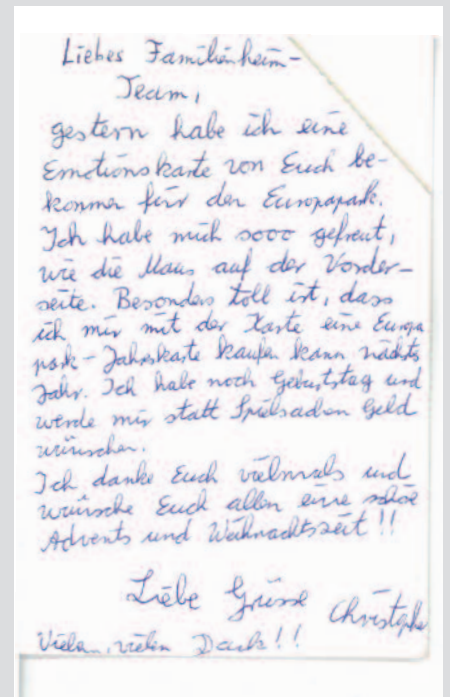 Liebes Familienheim-
Team,
gestern habe ich eine
Emotionskarte von Euch be-
kommen für den Europapark.
Ich habe mich sooo gefreut,
wie die Maus auf der Vorder-
seite. Besonders toll ist, dass
ich mir mit der Karte eine Europa
park-Jahreskarte kaufen kann nächstes
Jahr. Ich habe noch Geburtstag und
werde mir statt Spielsachen Geld
wünschen.
Ich danke Euch vielmals und
wünsche Euch allen eine schöne
Advents und Weihnachtszeit!!
Liebe Grüsse Christophe
Vielen, vielen Dank!!